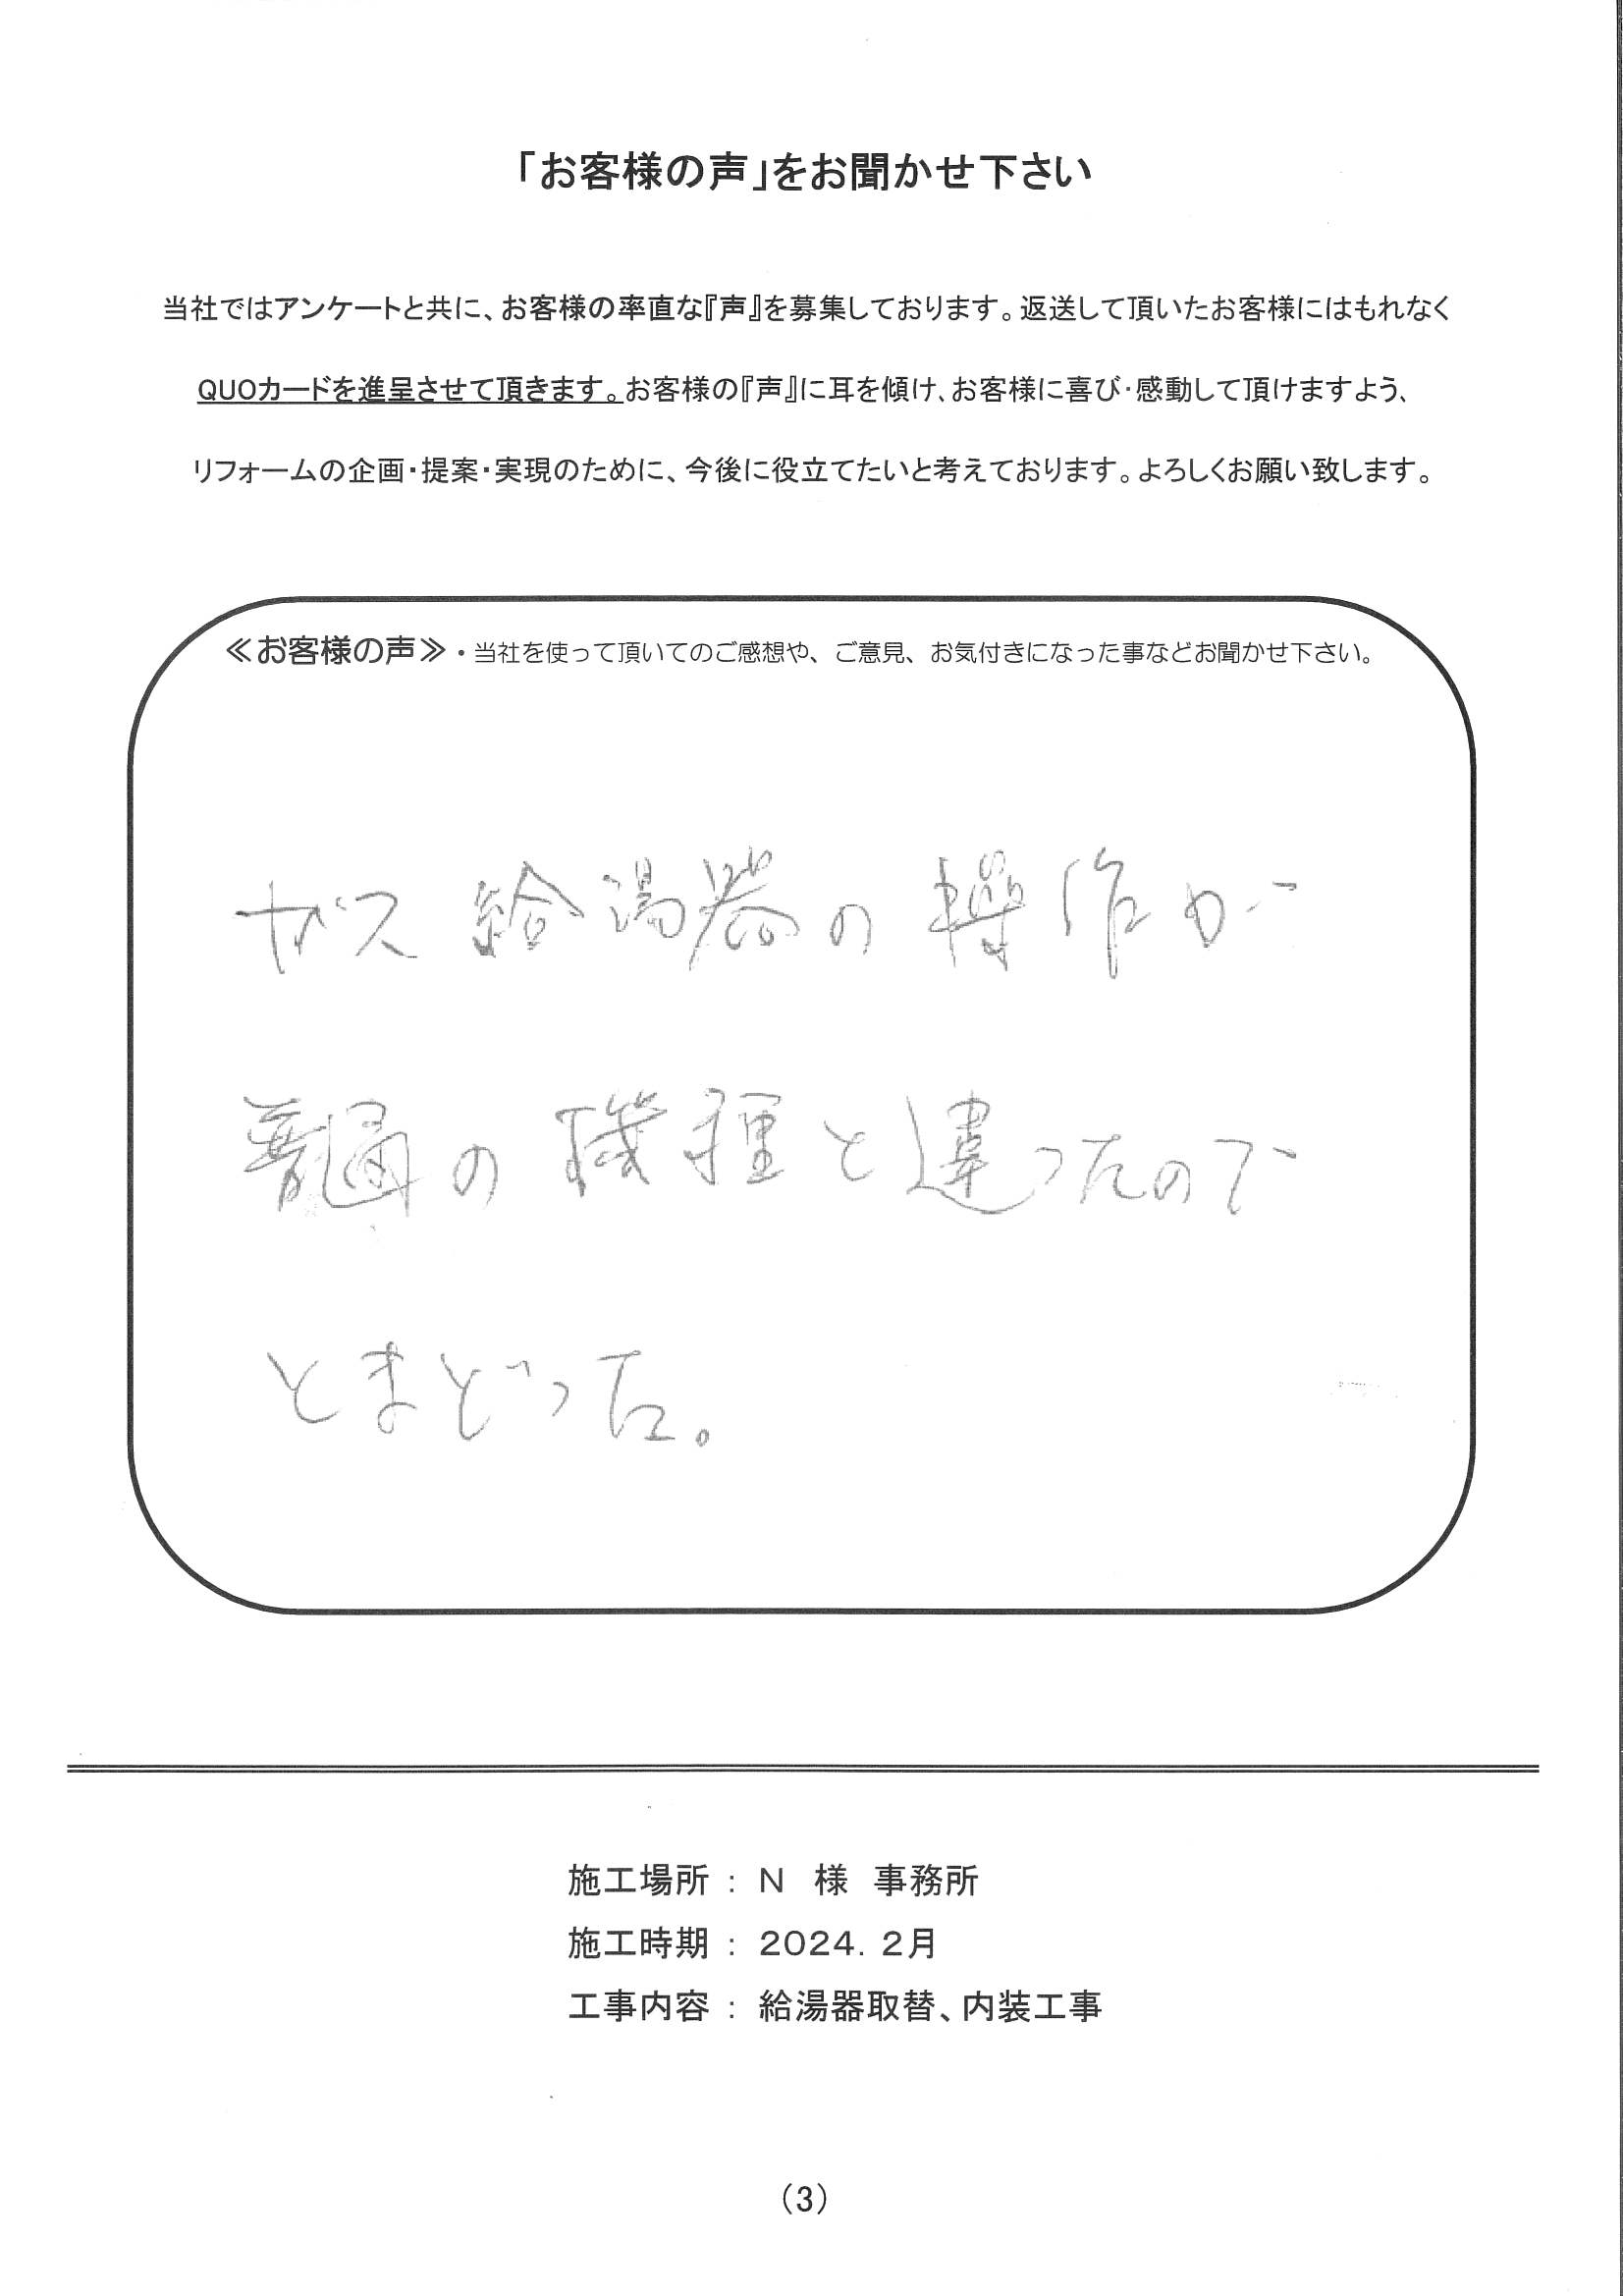 「お客様の声」をお聞かせ下さい
当社ではアンケートと共に、お客様の率直な『声』を募集しております。返送して頂いたお客様にはもれなく
QUOカードを進呈させて頂きます。お客様の『声』に耳を傾け、お客様に喜び・感動して頂けますよう、
リフォームの企画・提案・実現のために、今後に役立てたいと考えております。よろしくお願い致します。
≪お客様の声≫・当社を使って頂いてのご感想や、ご意見、お気付きになった事などお聞かせ下さい。
ガス給湯器の操作が
の機種と違ったので
とまどった。
施工場所 : N 様 事務所
施工時期 : 2024. 2月
工事内容 : 給湯器取替、内装工事
(3)